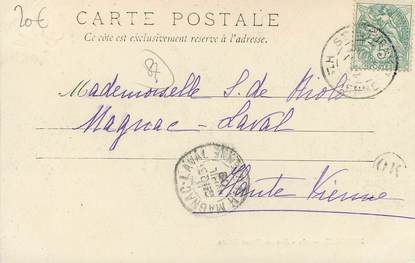 20€
CARTE POSTALE
Ce côté est exclusivement réservé à l'adresse.
Mademoiselle S. de
Magnac-Laval
Haute Vienne
MAGNAC-LAVAL